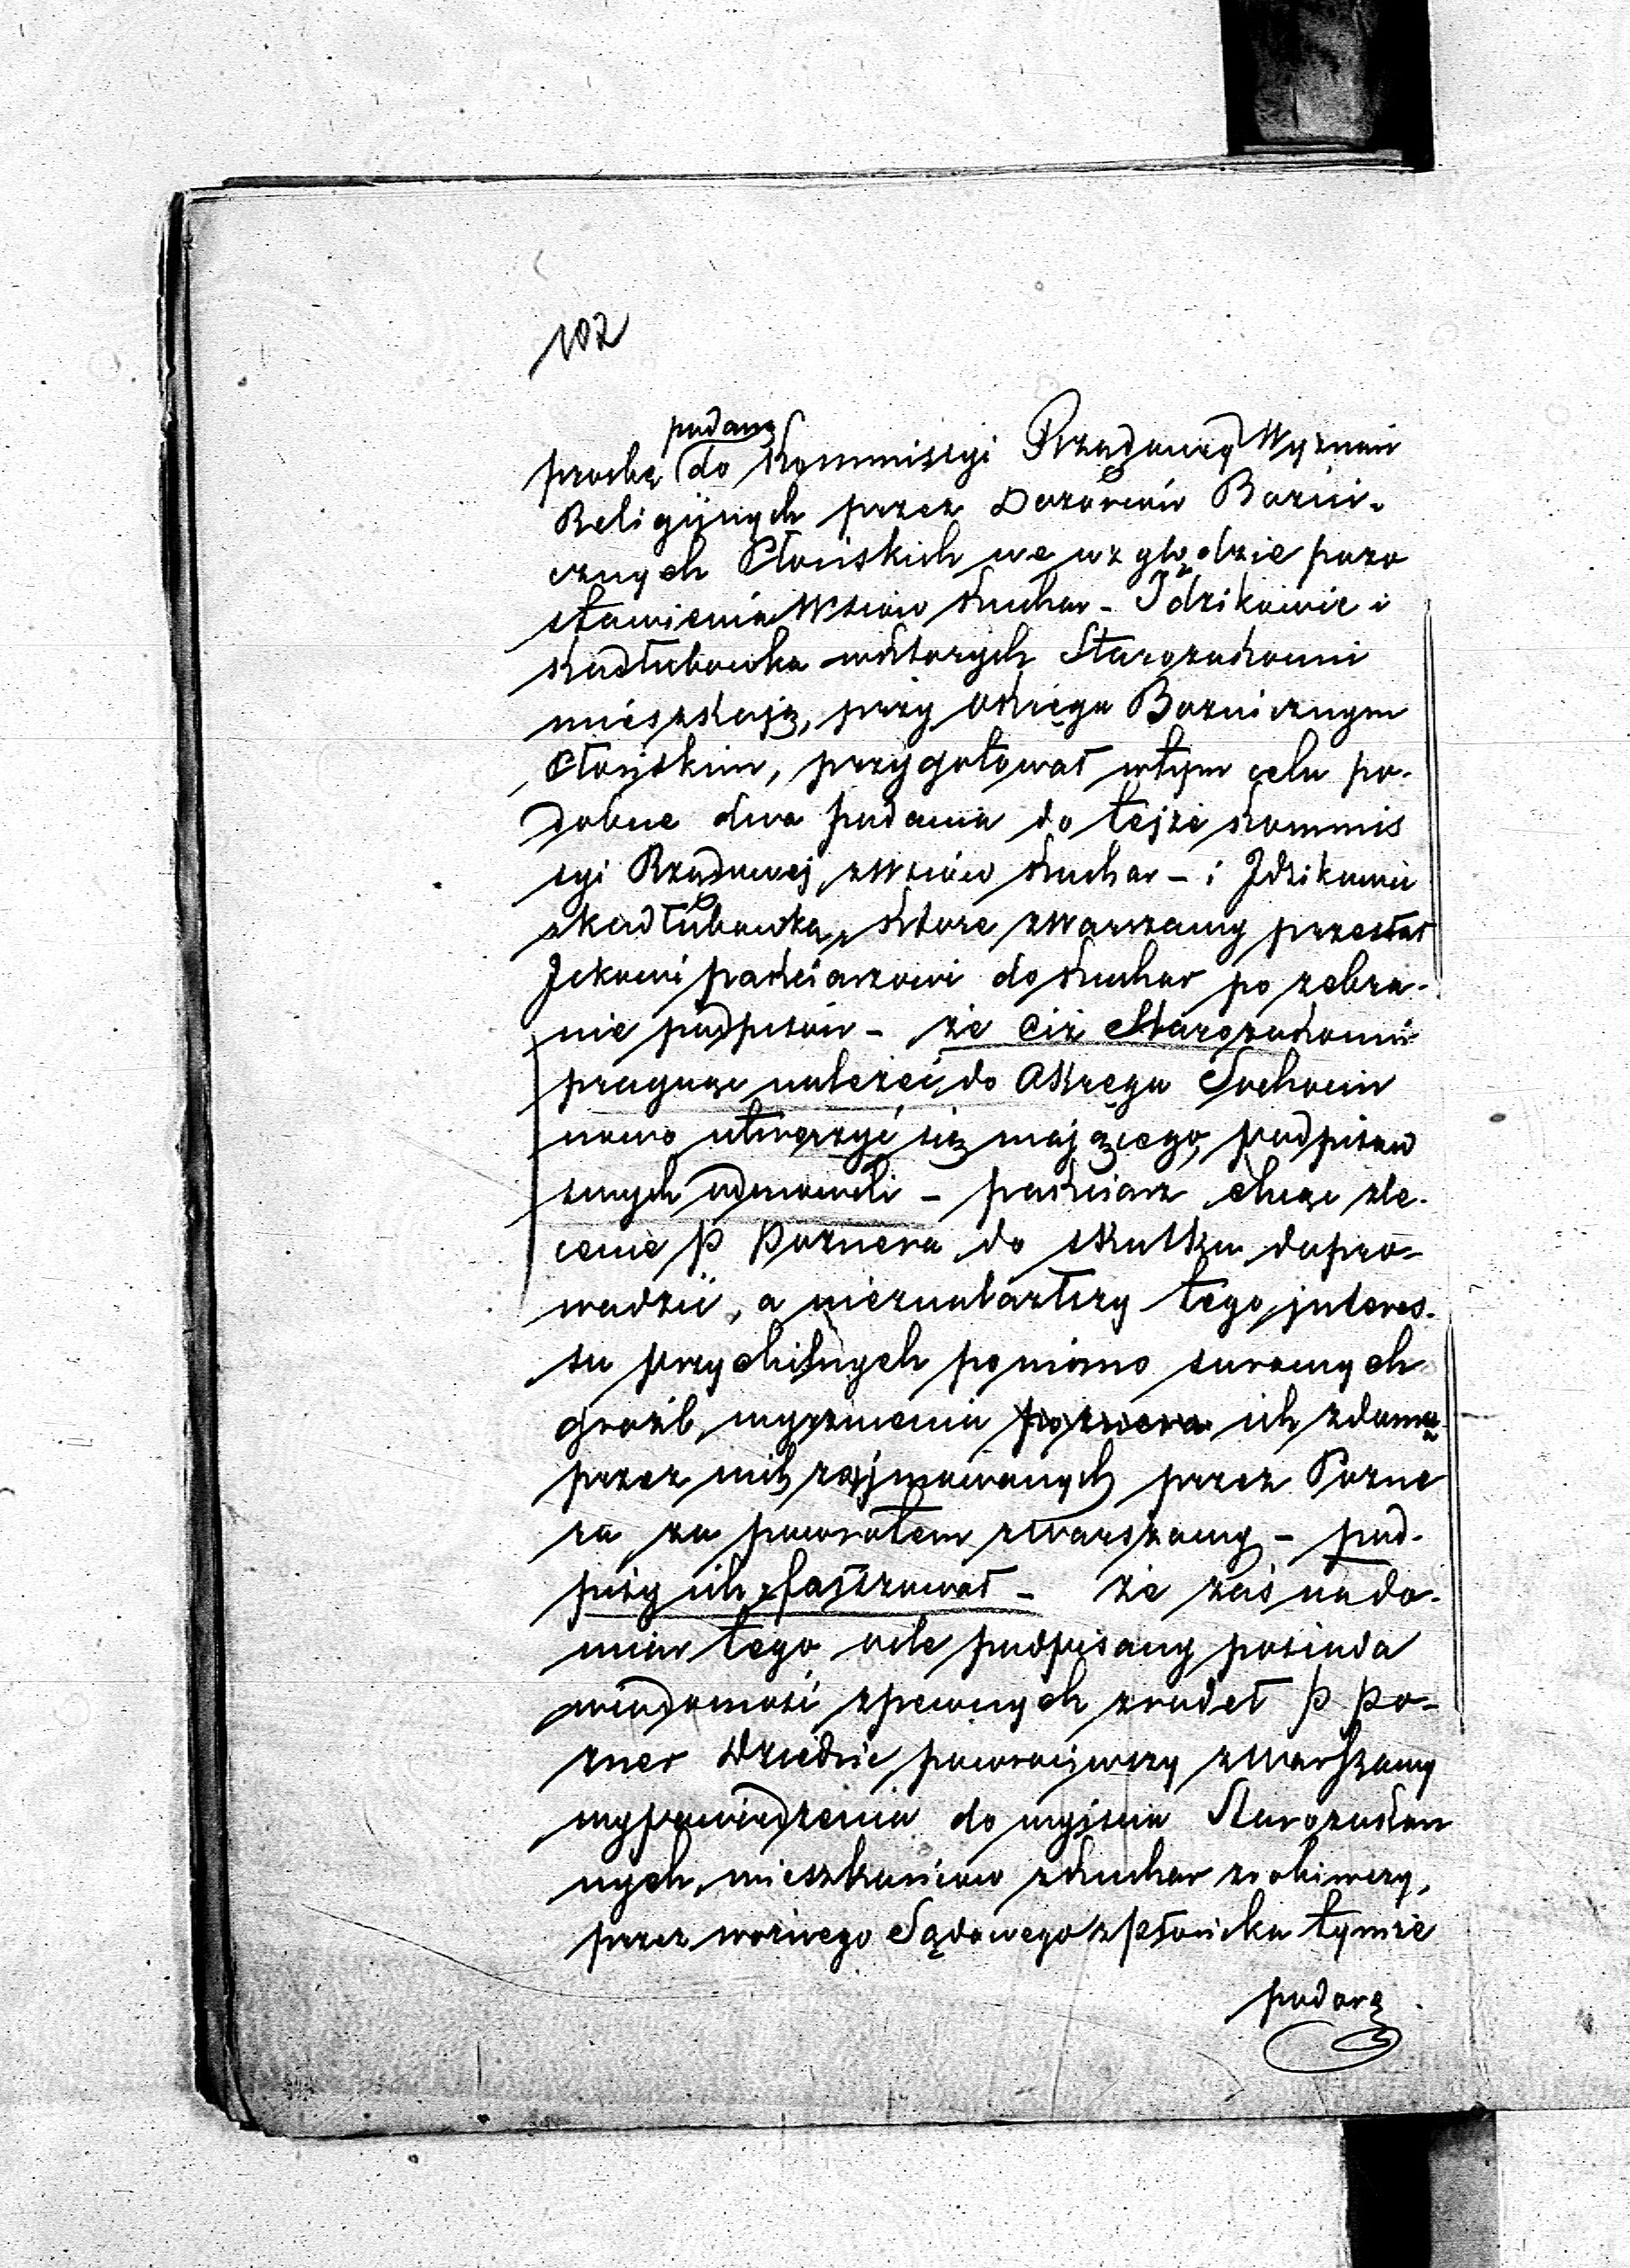 102
podaną
prozbę do Kommissyi Rządowej Wyznań
Religijnych przez Dozorców Bożni-
cznych Płońskich we względzie pozo
stawienia Wsiów Kuchar - Idzikowic i
Kadłubowka w których Starozakonni
mieszkają, przy Okręgu Bożnicznym
Płońskim, przygotował w tym celu po-
dobne dwa podania do tejże Kommis
syi Rządowej, z Wsiów Kuchar - i Idzikowic
i Kadłubowka, które z Warszawy przesłał
Ickowi pakciarzowi do Kuchar po zebra-
nie podpisów - że ciż Starozakonni
pragnąc należeć do Okręgu Sochocin
nowo utworzyć się mającego, podpisów
swych odmówili - pakciarz chcąc zle-
cenie P Poznera do skutku dopro-
wadzić, a nieznalazłszy tego interes-
su przychilnych pomimo surowych
groźb, wyrzucenia ich z domu
przez nich zajmowanych przez Pozne
ra za powrotem z Warszawy - pod-
pisy ich sfałszował - że zaś nado-
miar tego ocle podpisany posiada
wiadomość z pewnych źrodeł P. Po-
zner Dziedzic powrociwszy z Warszawy
wypowiedzenia do wyjścia Starozakon
nych, mieszkańców z Kuchar zrobiwszy,
przez woźnego Sądowego z Płońska tymże
podorę